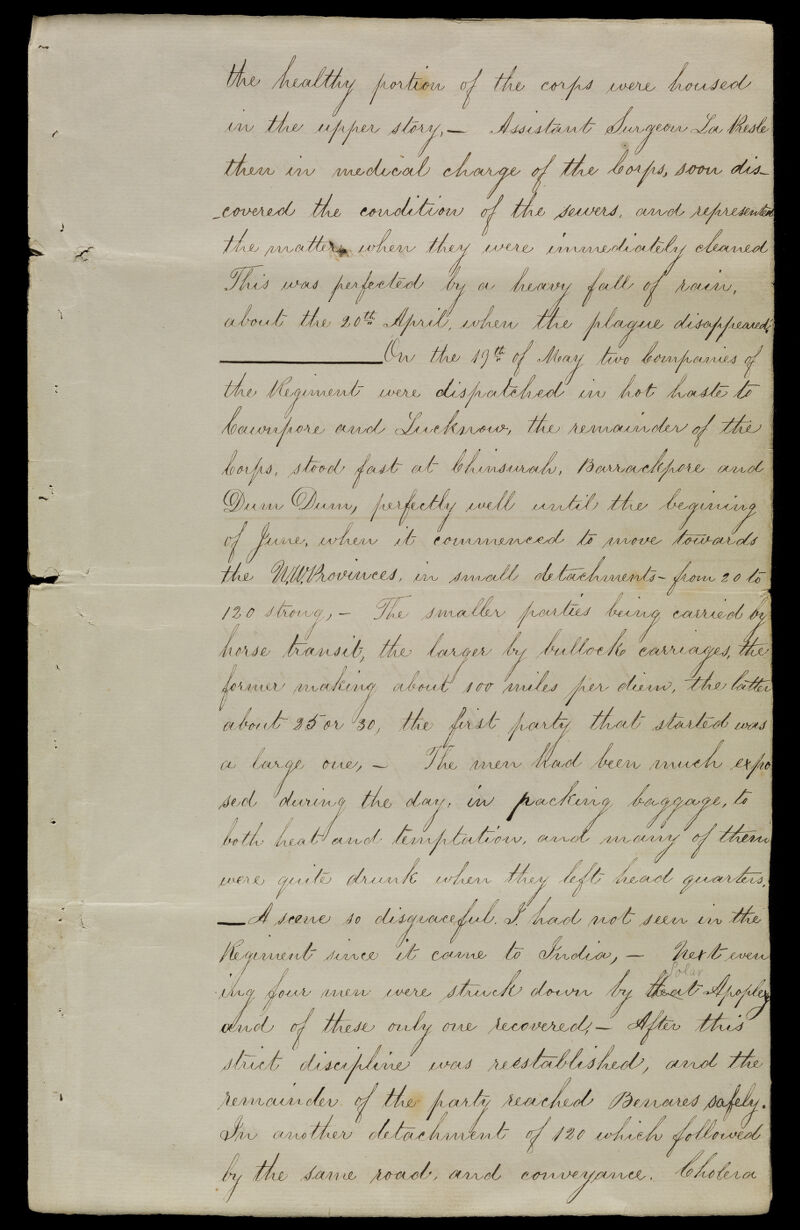 the healthy portion of the corps were housed
in the upper story, — Assistant Surgeon La Presle
then in medical charge of the Corps, soon dis-
-covered the condition of the sewers, and represented
the matter, when they were immediately cleaned
This was perfected by a heavy fall of rain,
about the 20th April, when the plague disappeared.
On the 19th of May two Companies of
the Regiment were dispatched in hot haste to
Cawnpore and Lucknow, the remainder of the
Corps, stood fast at Chinsurah, Barrackpore and
Dum Dum, perfectly well until the begining
of June, when it commenced to move towards
the N.W. Provinces, in small detachments - from 20 to
120 strong, — The smaller parties being carried by
horse transit, the larger by bullock carriages, the
former making about 100 miles per diem, the latter
about 25 or 30, the first party that started was
a large one, — The men had been much expo
sed during the day, in packing baggage, to
both heat and temptation, and many of them
were quite drunk when they left head quarters.
— A scene so disgraceful I had not seen in the
Regiment since it came to India, — Next even
Solar
ing four men were struck down by Heat Apoplexy
and of these only one recovered, — After this
strict discipline was reestablished, and the
remainder of the party reached Benares safely.
In another detachment of 120 which followed
by the same road, and conveyance. Cholera